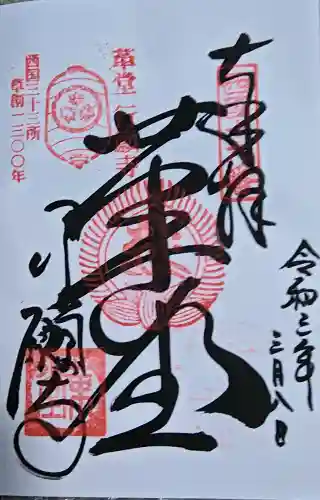 奉拝
令和三年
三月八日
革堂
行願寺
西国三十三所
草創一三〇〇年
革堂行願寺